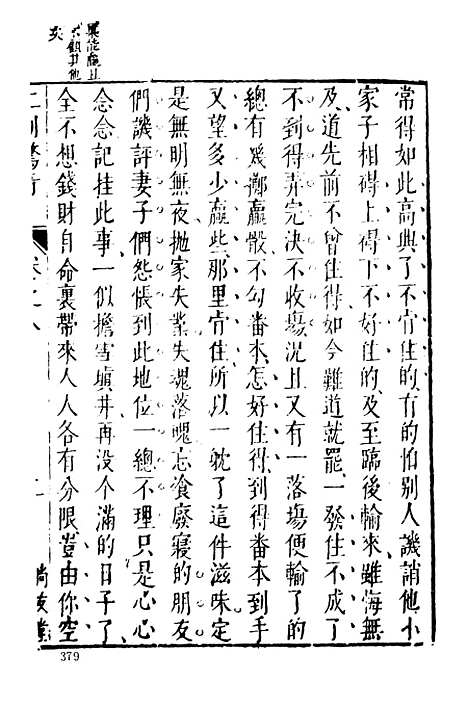 果能贏且
不顧其他
矣
常得如此高興了不肯住的有的怕別人譏誚他小
家子相碍上碍下不好住的及至臨後輸來雖悔無
及道先前不曾住得如今難道就罷一發住不成了
不到得弄完決不收塲況且又有一落塲便輸了的
總有幾擲贏骰不勾番本怎好住得到得番本到手
又望多少贏些那里肯住所以一躭了這件滋味定
是無明無夜抛家失業失魂落魄忘飡廢寢的朋友
們譏評妻子們怨悵到此地位一總不理只是心心
念念記挂此事一似擔雪塡井再没个滿的日子了
全不想錢財自命裏帶來人人各有分限豈由你空
二刻驚奇
卷之八
二
尚友堂
379